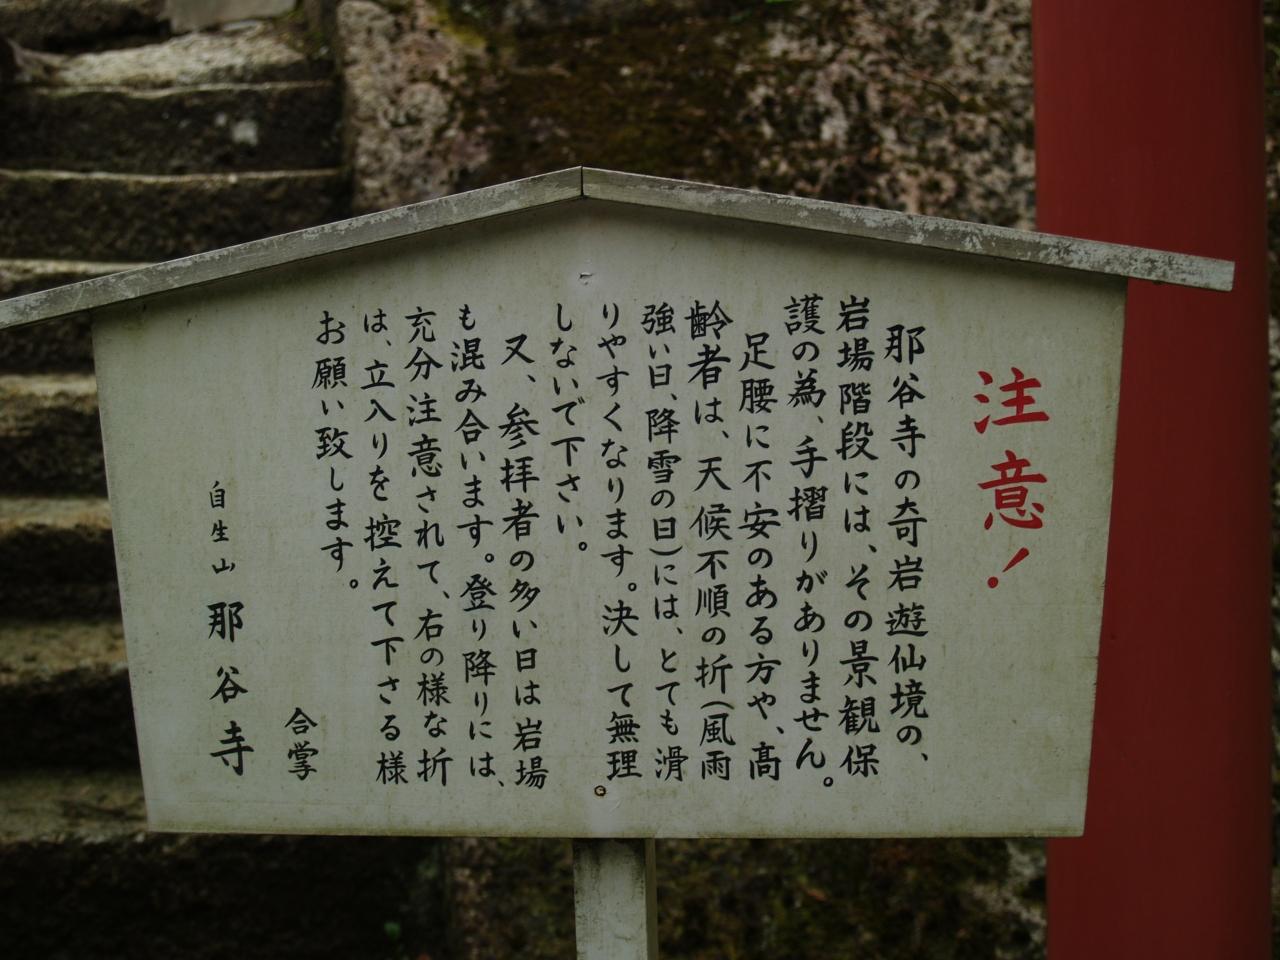 注意！
那谷寺の奇岩遊仙境の、
岩場階段には、その景観保
護の為、手摺りがありません。
足腰に不安のある方や、高
齢者は、天候不順の折(風雨
強い日、降雪の日)には、とても滑
りやすくなります。決して無理
しないで下さい。
又、参拝者の多い日は岩場
も混み合います。登り降りには、
充分注意されて、右の様な折
は、立入りを控えて下さる様
お願い致します。
合掌
自生山 那谷寺